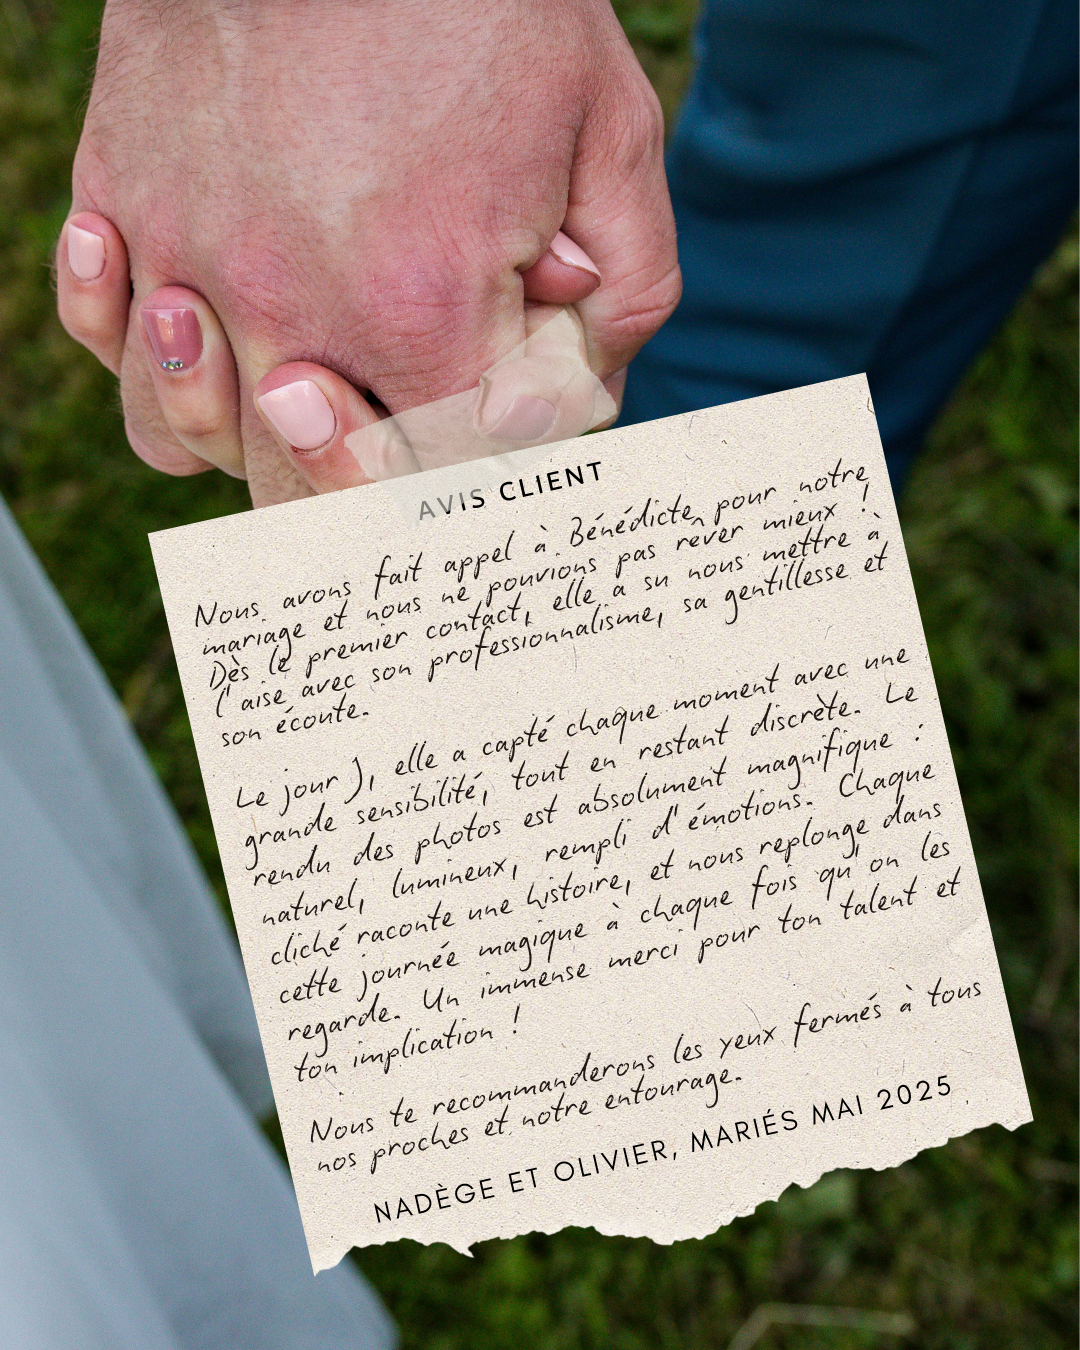 AVIS CLIENT
Nous avons fait appel à Bénédicte pour notre
mariage et nous ne pouvions pas rêver mieux !
Dès le premier contact, elle a su nous mettre à
l'aise avec son professionnalisme, sa gentillesse et
son écoute.
Le jour J, elle a capté chaque moment avec une
grande sensibilité, tout en restant discrète. Le
rendu des photos est absolument magnifique :
naturel, lumineux, rempli d'émotions. Chaque
cliché raconte une histoire, et nous replonge dans
cette journée magique à chaque fois qu'on les
regarde. Un immense merci pour ton talent et
ton implication !
Nous te recommanderons les yeux fermés à tous
nos proches et notre entourage.
NADÈGE ET OLIVIER, MARIÉS MAI 2025